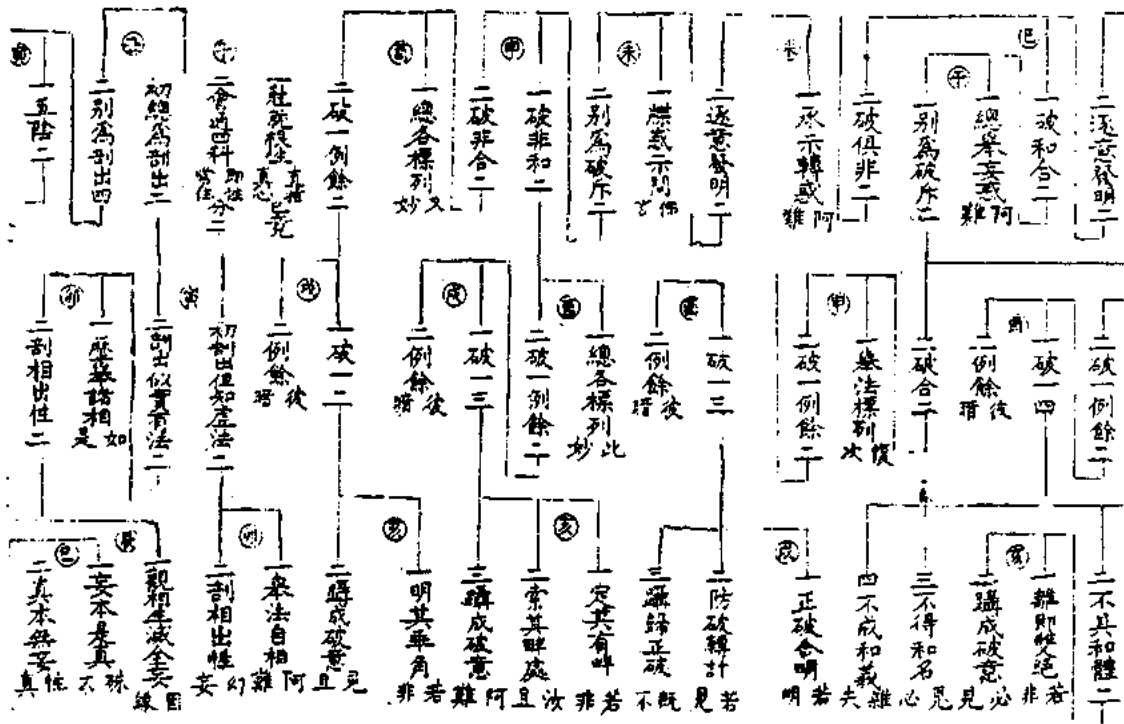 二逐意發明二
巳
一破和合二
一總舉妄惑
阿難
午
二別為破斥二
二破俱非二
一承示轉惑
阿難
二逐意發明二
一牒惑示問
未
二別為破斥二
一破非和二
申
二破非合二
一總各標列
又妙
二破一例餘二
二會通四科
即性常住
分二
初總為剖出二
二別為剖出四
一五陰二
寅
二破一例餘二
一破一四
酉
二例餘
彼暗
二破合二
一舉法標列
復次
申
二破一例餘二
一破一三
二例餘
彼暗
一總各標列
此妙
二破一例餘二
一破一三
戌
二例餘
彼暗
一破一二
二例餘
彼暗
初剖出但知虛法二
二剖出似實有法二
寅
一歷舉諸相
如是
卯
二剖相出性二
二不具和體二
一離即雙絕
若非
亥
二躡成破意
必見
三不得和名
見必
四不成和義
一正破合明
若明
戌
二防破轉計
若見
三躡歸正破
既不
一定其有畔
若非
亥
二索其畔處
汝且
三躡成破意
阿難
一明其乖角
若非
亥
二躡成破意
見且
一舉法自相
阿難
卯
二剖相出性
幻妄
一觀相生滅全妄
因緣
辰
一妄本是真
殊不
巳
二真本無妄
性真